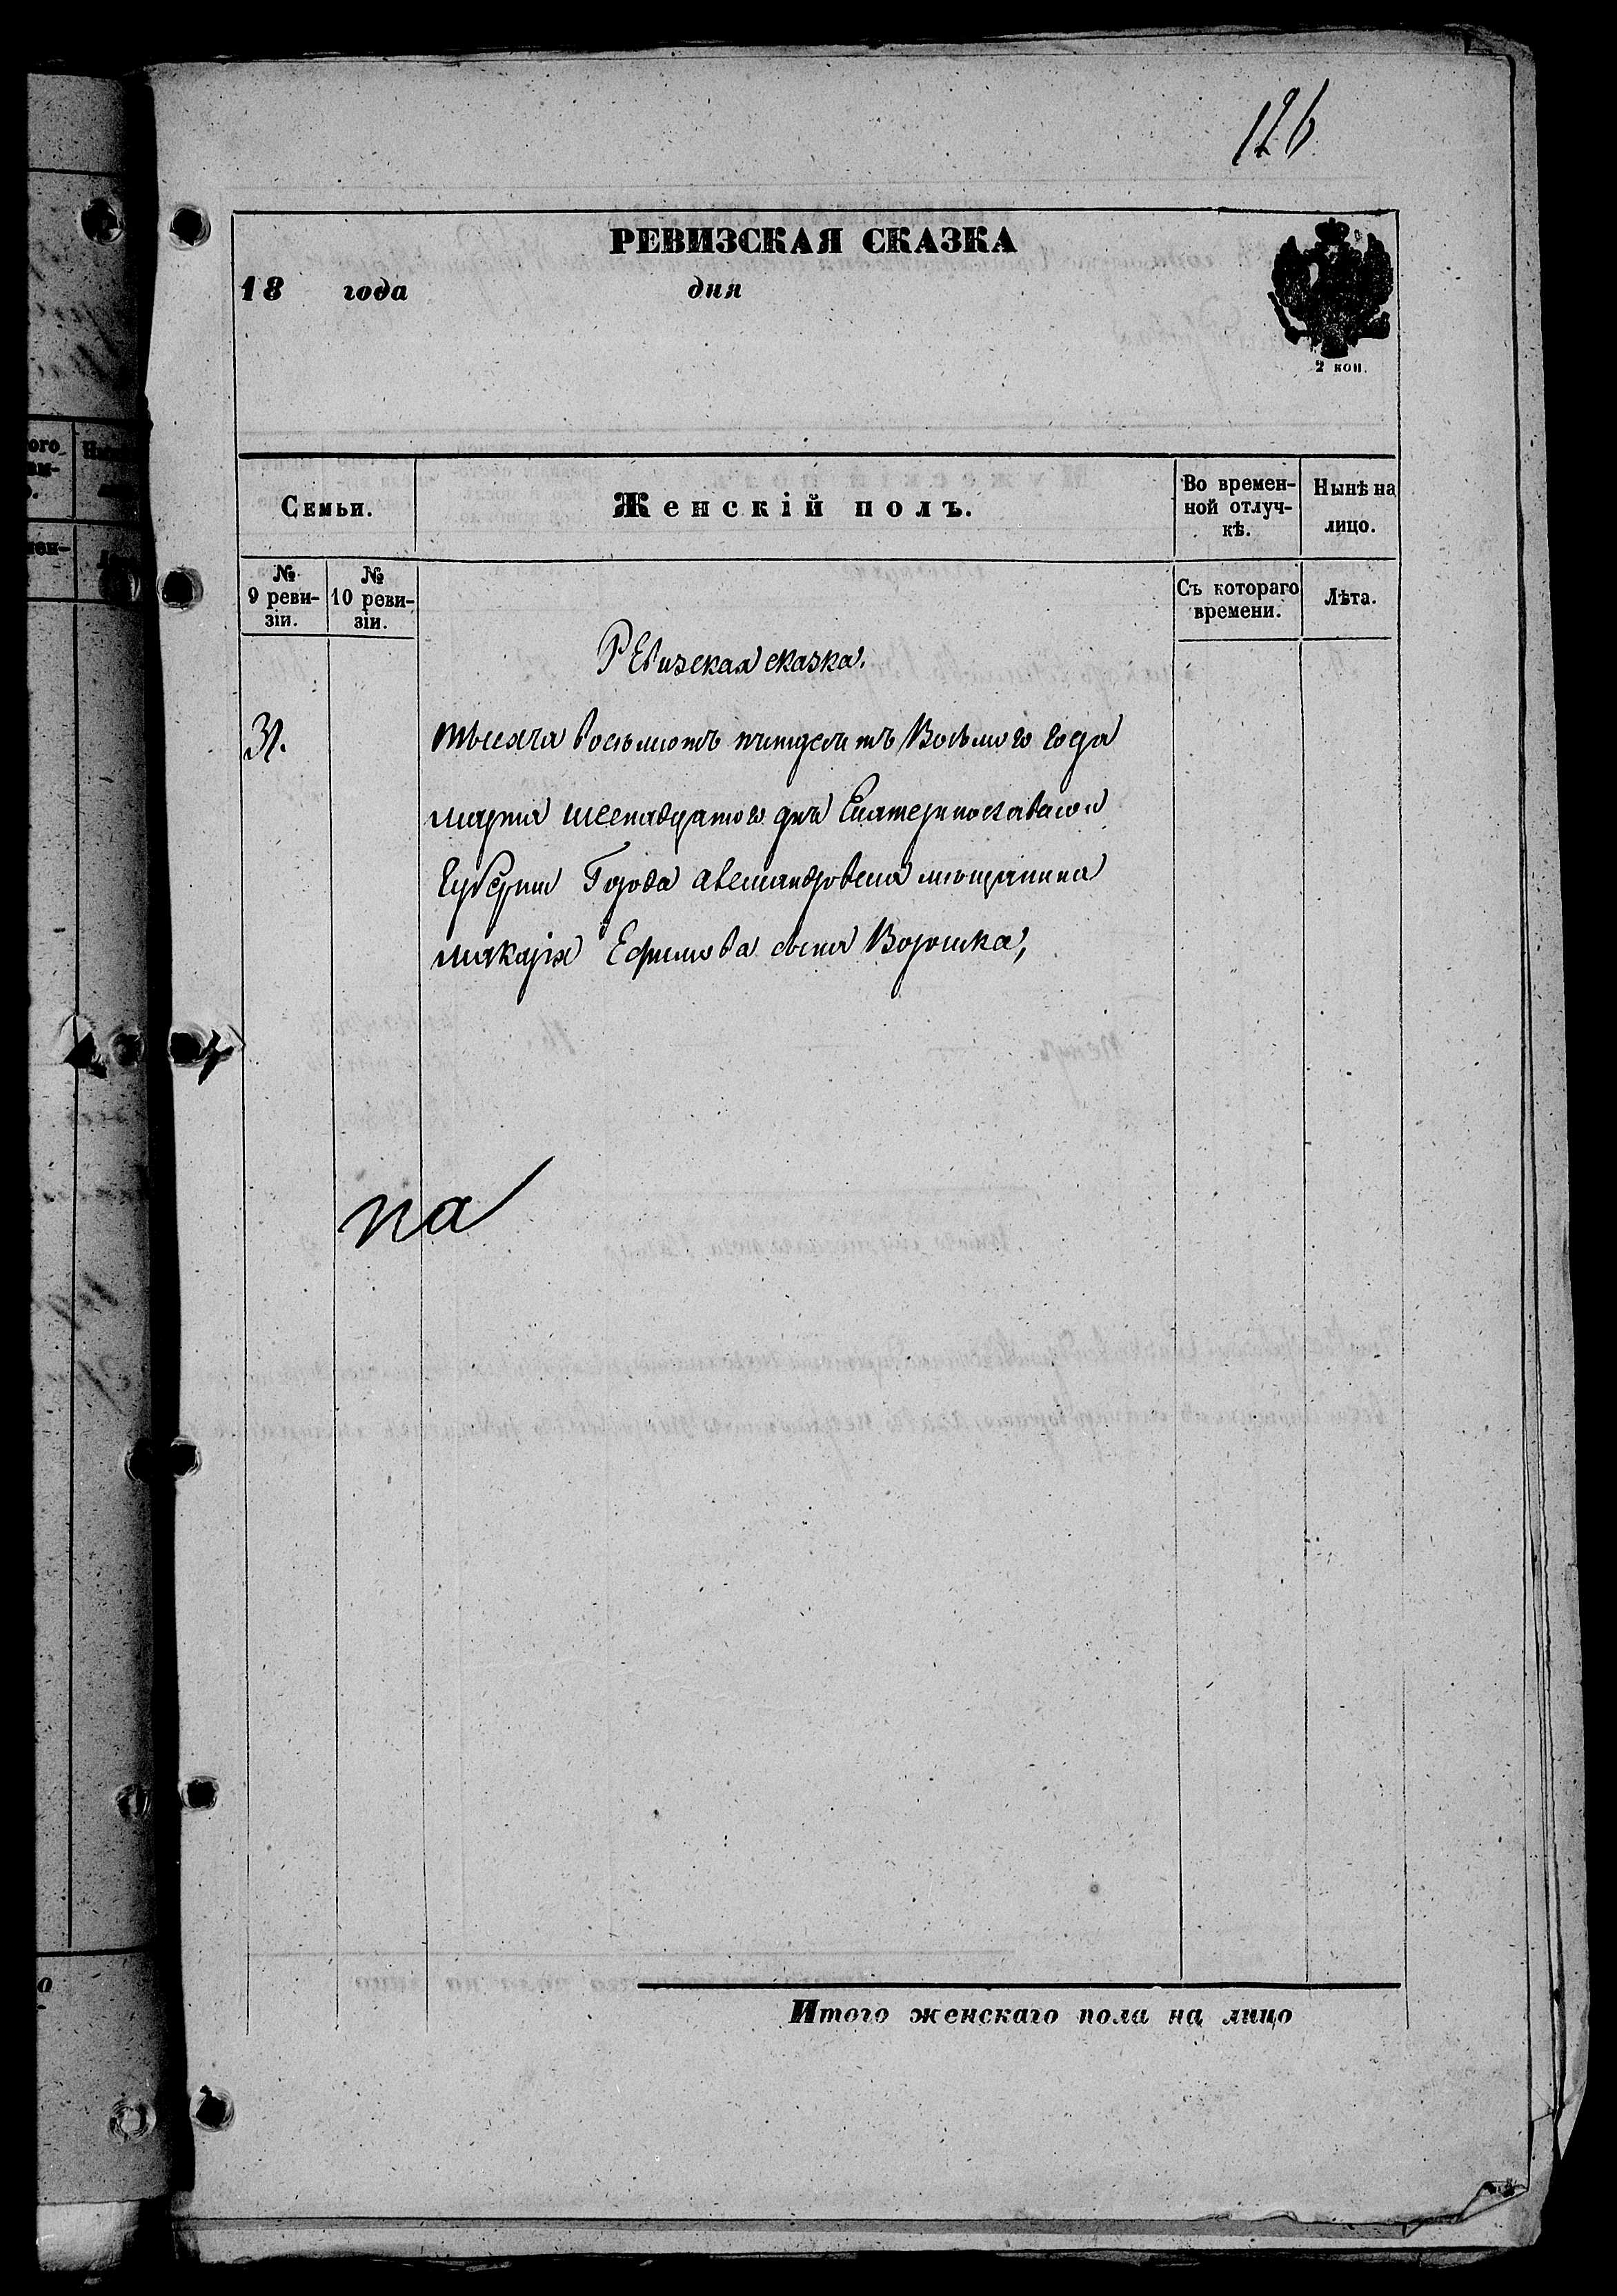 126
РЕВИЗСКАЯ СКАЗКА
18 года дня
2 коп.
Семьи.
Женскій полъ.
Во времен-
ной отлуч-
кѣ.
Нынѣ на
лицо.
№
9 реви-
зіи.
№
10 реви-
зіи.
Съ котораго
времени.
Лѣта.
Ревизская сказка.
31.
тысяча восьмотъ пятдесятъ Восьмого года
марта шеснадцатого дня Екатеринославской
Губерніи Города Александровска мѣщанина
Макарія Ефимова сына Ворошка,
на
Итого женскаго пола на лицо